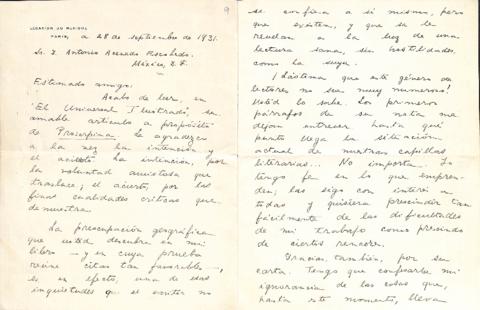 LEGACION DE MEXICO
PARIS, a 28 de septiembre de 1931.
Sr. D. Antonio Acevedo Escobedo.
México, D. F.
Estimado amigo:
Acabo de leer, en
"El Universal Ilustrado", su
amable artículo a propósito
de Proserpina. Le agradezco
a la vez la intención y
el acierto. La intención, por
la voluntad amistosa que
trasluce; el acierto, por las
finas cualidades críticas que
demuestra.
La preocupación geográfica
que usted descubre en mi
libro — y en cuya prueba
reúne citas tan favorables —,
es, en efecto, una de esas
inquietudes que el escritor no
9
se confiesa a sí mismo, pero
que existen, y que se le
revelan a la luz de una
lectura sana, sin hostilidades,
como la suya.
¡Lástima que este género de
lectores no sea muy numeroso!
Usted lo sabe. Los primeros
párrafos de su nota me
dejan entrever hasta qué
punto llega la situación
actual de nuestras capillas
literarias... No importa. Yo
tengo fe en lo que empren-
den; las sigo con interés a
todas y quisiera prescindir tan
fácilmente de las dificultades
de mi trabajo como prescindo
de ciertos rencores.
Gracias, también, por su
carta. Tengo que confesarle mi
ignorancia de las cosas que,
hasta este momento, lleva